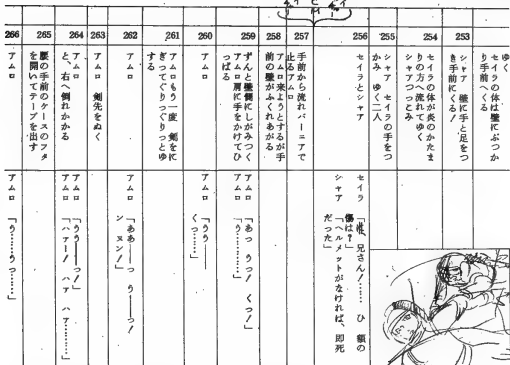 ゆく
セイラの体は壁にぶつか
り手前へくる
253
シャア 壁に手と足をつ
き手前にくる!
254
セイラの体が炎のかたま
りの方へ流れてゆく
シャアつっこみ
255
シャア セイラの手をつ
かみ ゆく二人
256
セイラとシャア
セイラ 「兄さん!…… ひ 額の
傷は?」
シャア 「ヘルメットがなければ、即死
だった」
257
手前から流れバーニアで
止るアムロ
258
アムロ来ようとするが手
前の壁がふくれあがる
259
ずんと壁側にしがみつく
アムロ肩に手をかけてひ
っぱる
アムロ 「あっ うっ! くっ!」
アムロ 「う……うっ……」
260
アムロ
アムロ 「うう——
くっ……」
261
アムロもう一度 剣をに
ぎってぐりぐりっとゆ
する
262
アムロ
アムロ 「ああ——っ う——っ!
ン ヌン!」
263
アムロ 剣先をぬく
264
アムロ
と、右へ倒れかかる
アムロ 「うう——っ!」
アムロ 「ハァー! ハァ ハァ………」
265
腰の手前のケースのフタ
を開いてテープを出す
266
アムロ
アムロ 「う……うっ……」